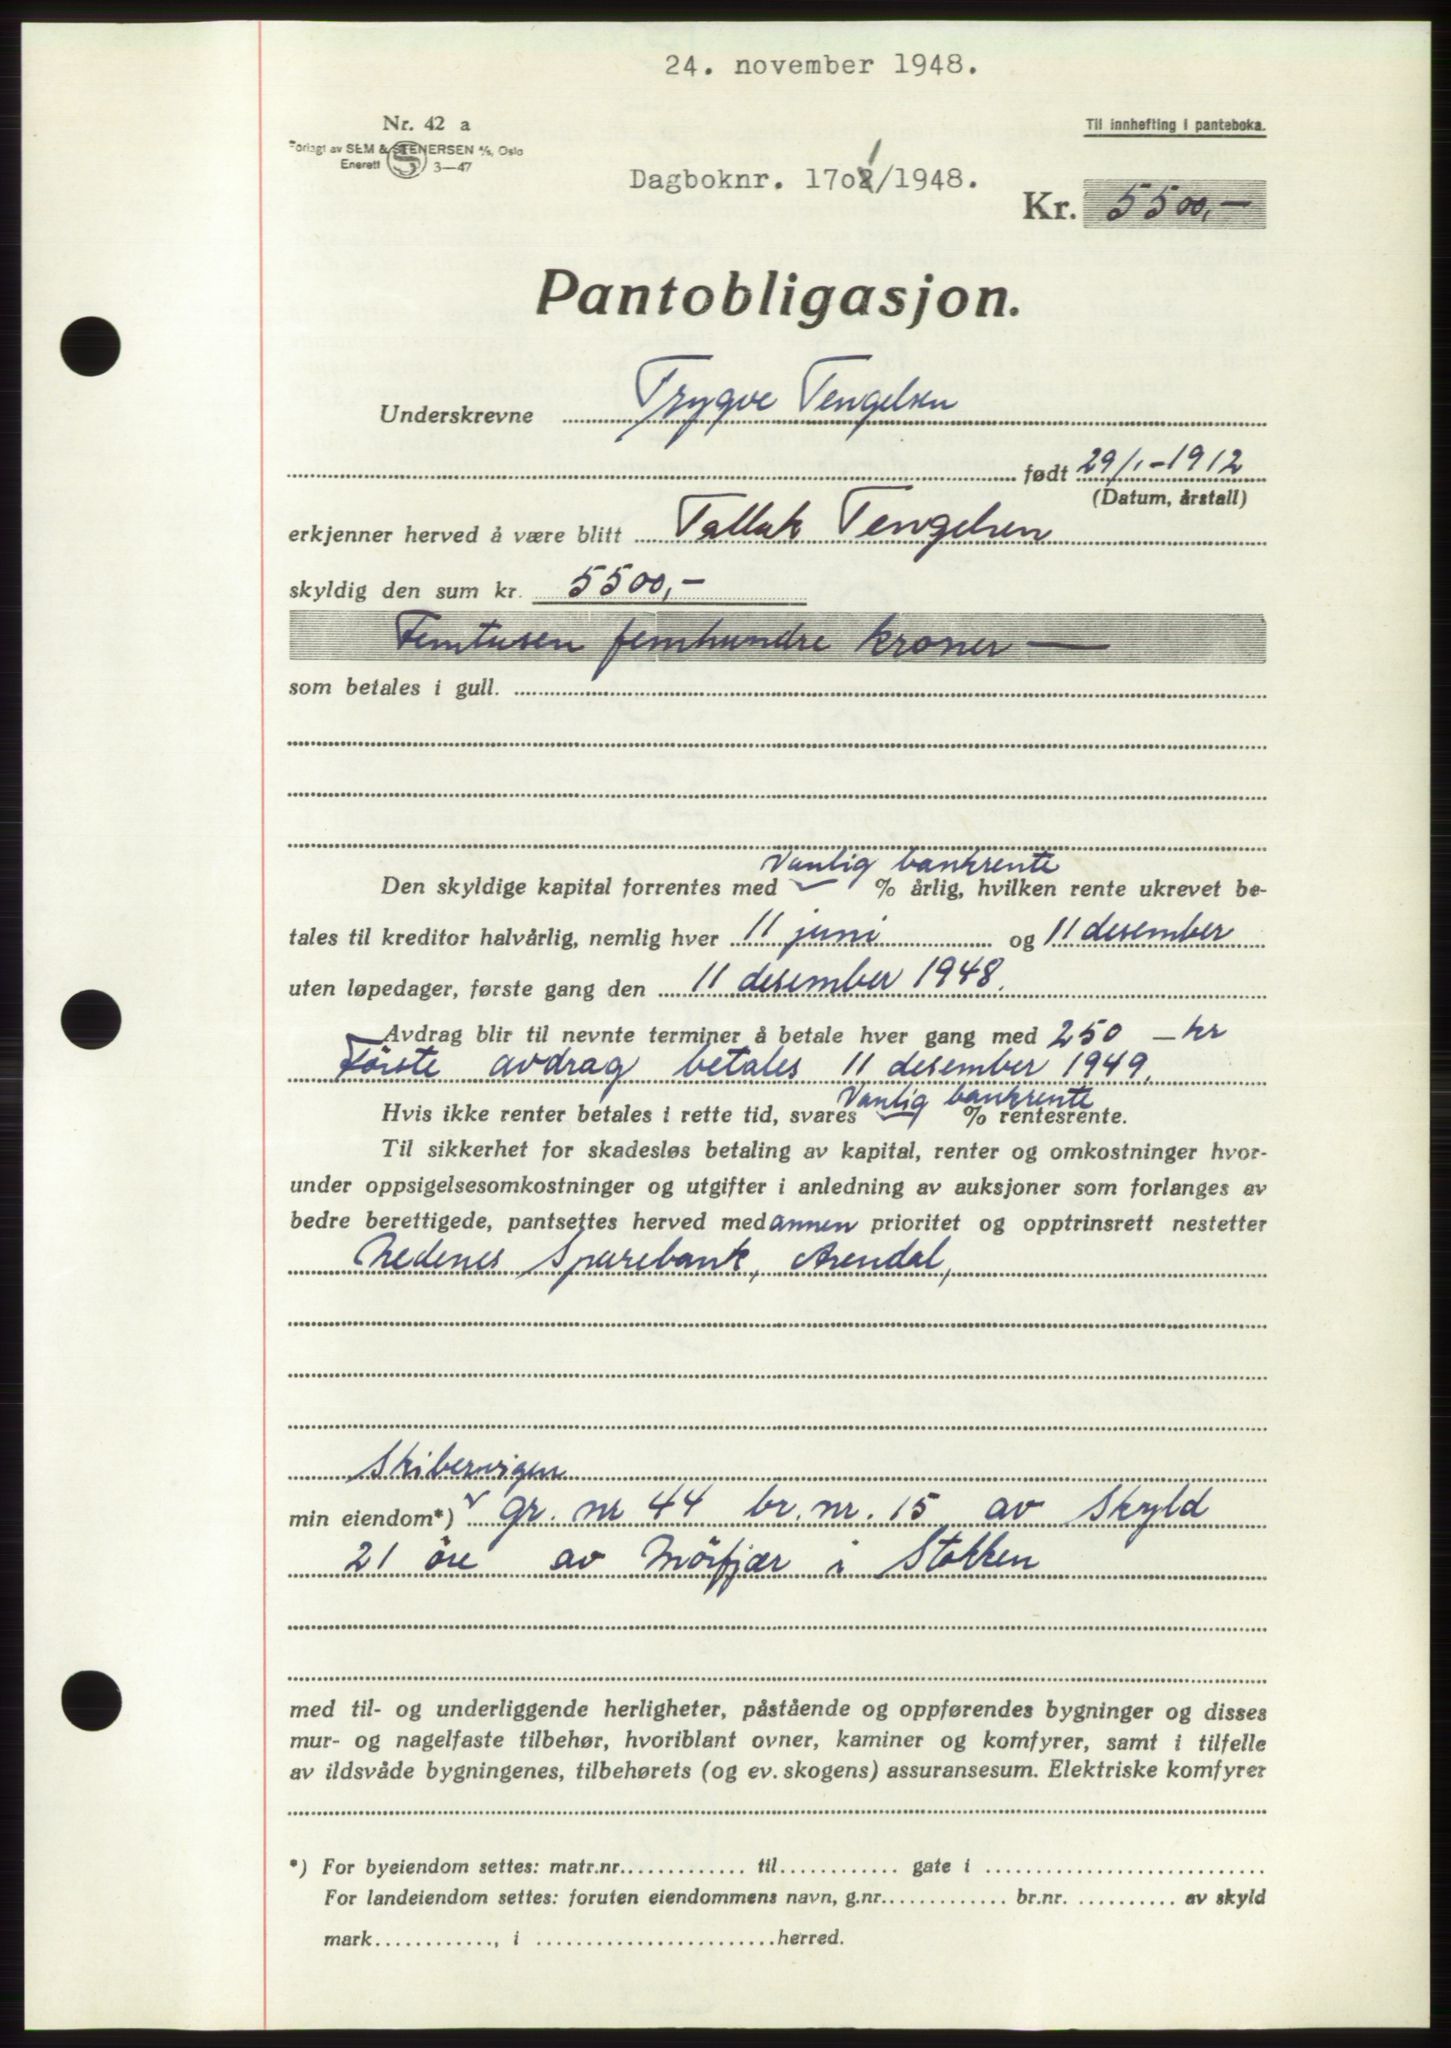 24. november 1948.
Nr. 42 a
Til innhefting i panteboka.
Forlagt av SEM & STENERSEN A/S, Oslo
Enerett S 3—47
Dagboknr. 1701/1948.
Kr. 5500,-
Pantobligasjon.
Underskrevne Trygve Tengelsen
født 29/1-1912
(Datum, årstall)
erkjenner herved å være blitt Tallak Tengelsen
skyldig den sum kr. 5500,-
Femtusen femhundre kroner —
som betales i gull.
Vanlig bankrente
Den skyldige kapital forrentes med % årlig, hvilken rente ukrevet be-
tales til kreditor halvårlig, nemlig hver 11 juni og 11 desember
uten løpedager, første gang den 11 desember 1948.
Avdrag blir til nevnte terminer å betale hver gang med 250 - kr
Förste avdrag betales 11 desember 1949.
Vanlig bankrente
Hvis ikke renter betales i rette tid, svares % rentesrente.
Til sikkerhet for skadesløs betaling av kapital, renter og omkostninger hvor-
under oppsigelsesomkostninger og utgifter i anledning av auksjoner som forlanges av
bedre berettigede, pantsettes herved med annen prioritet og opptrinsrett nestetter
Nedenes Sparebank, Arendal,
Skibervigen
min eiendom*) gr. nr 44 br. nr. 15 av Skyld
21 öre av Mörfjær i Stokken
med til- og underliggende herligheter, påstående og oppførendes bygninger og disses
mur- og nagelfaste tilbehør, hvoriblant ovner, kaminer og komfyrer, samt i tilfelle
av ildsvåde bygningenes, tilbehørets (og ev. skogens) assuransesum. Elektriske komfyrer
*) For byeiendom settes: matr.nr............. til............ gate i ............................
For landeiendom settes: foruten eiendommens navn, g.nr............. br.nr. ........... av skyld
mark............, i ........................herred.